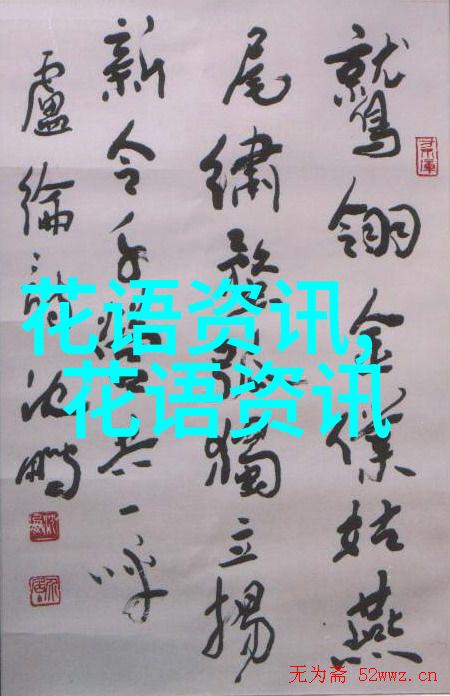 鷲翎金僕姑燕
尾繡蝥弧獨立揚
新令千營共一呼
盧綸詩 沈鵬
花语资讯,
花语资讯
无为斋 52wwz.cn